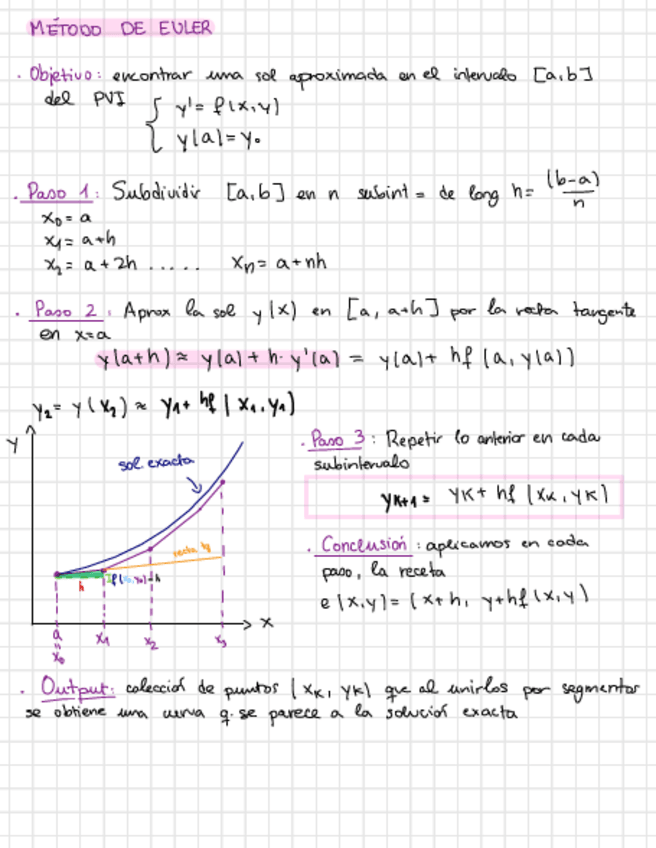 MÉTODO DE EULER
· Objetivo: encontrar una sol aproximada en el intervalo [a,b]
del PVI { y' = f(x,y)
y(a) = y₀
· Paso 1: Subdividir [a,b] en n subint = de long h = (b-a)/n
x₀ = a
x₁ = a+h
x₂ = a + 2h ..... xₙ = a + nh
· Paso 2: Aprox la sol y(x) en [a, a+h] por la recta tangente
en x=a
y(a+h) ≈ y(a) + h · y'(a) = y(a) + hf (a, y(a))
y₂ = y(x₂) ≈ y₁ + hf (x₁, y₁)
y
sol exacta
recta tg
h
a
"
x₀
x₁
x₂
x₃
x
· Paso 3: Repetir lo anterior en cada
subintervalo
yₖ₊₁ = yₖ + hf (xₖ, yₖ)
· Conclusión: aplicamos en cada
paso, la receta
e(x,y) = (x+h, y+hf(x,y)
· Output: colección de puntos (xₖ, yₖ) que al unirlos por segmentos
se obtiene una curva q. se parece a la solución exacta